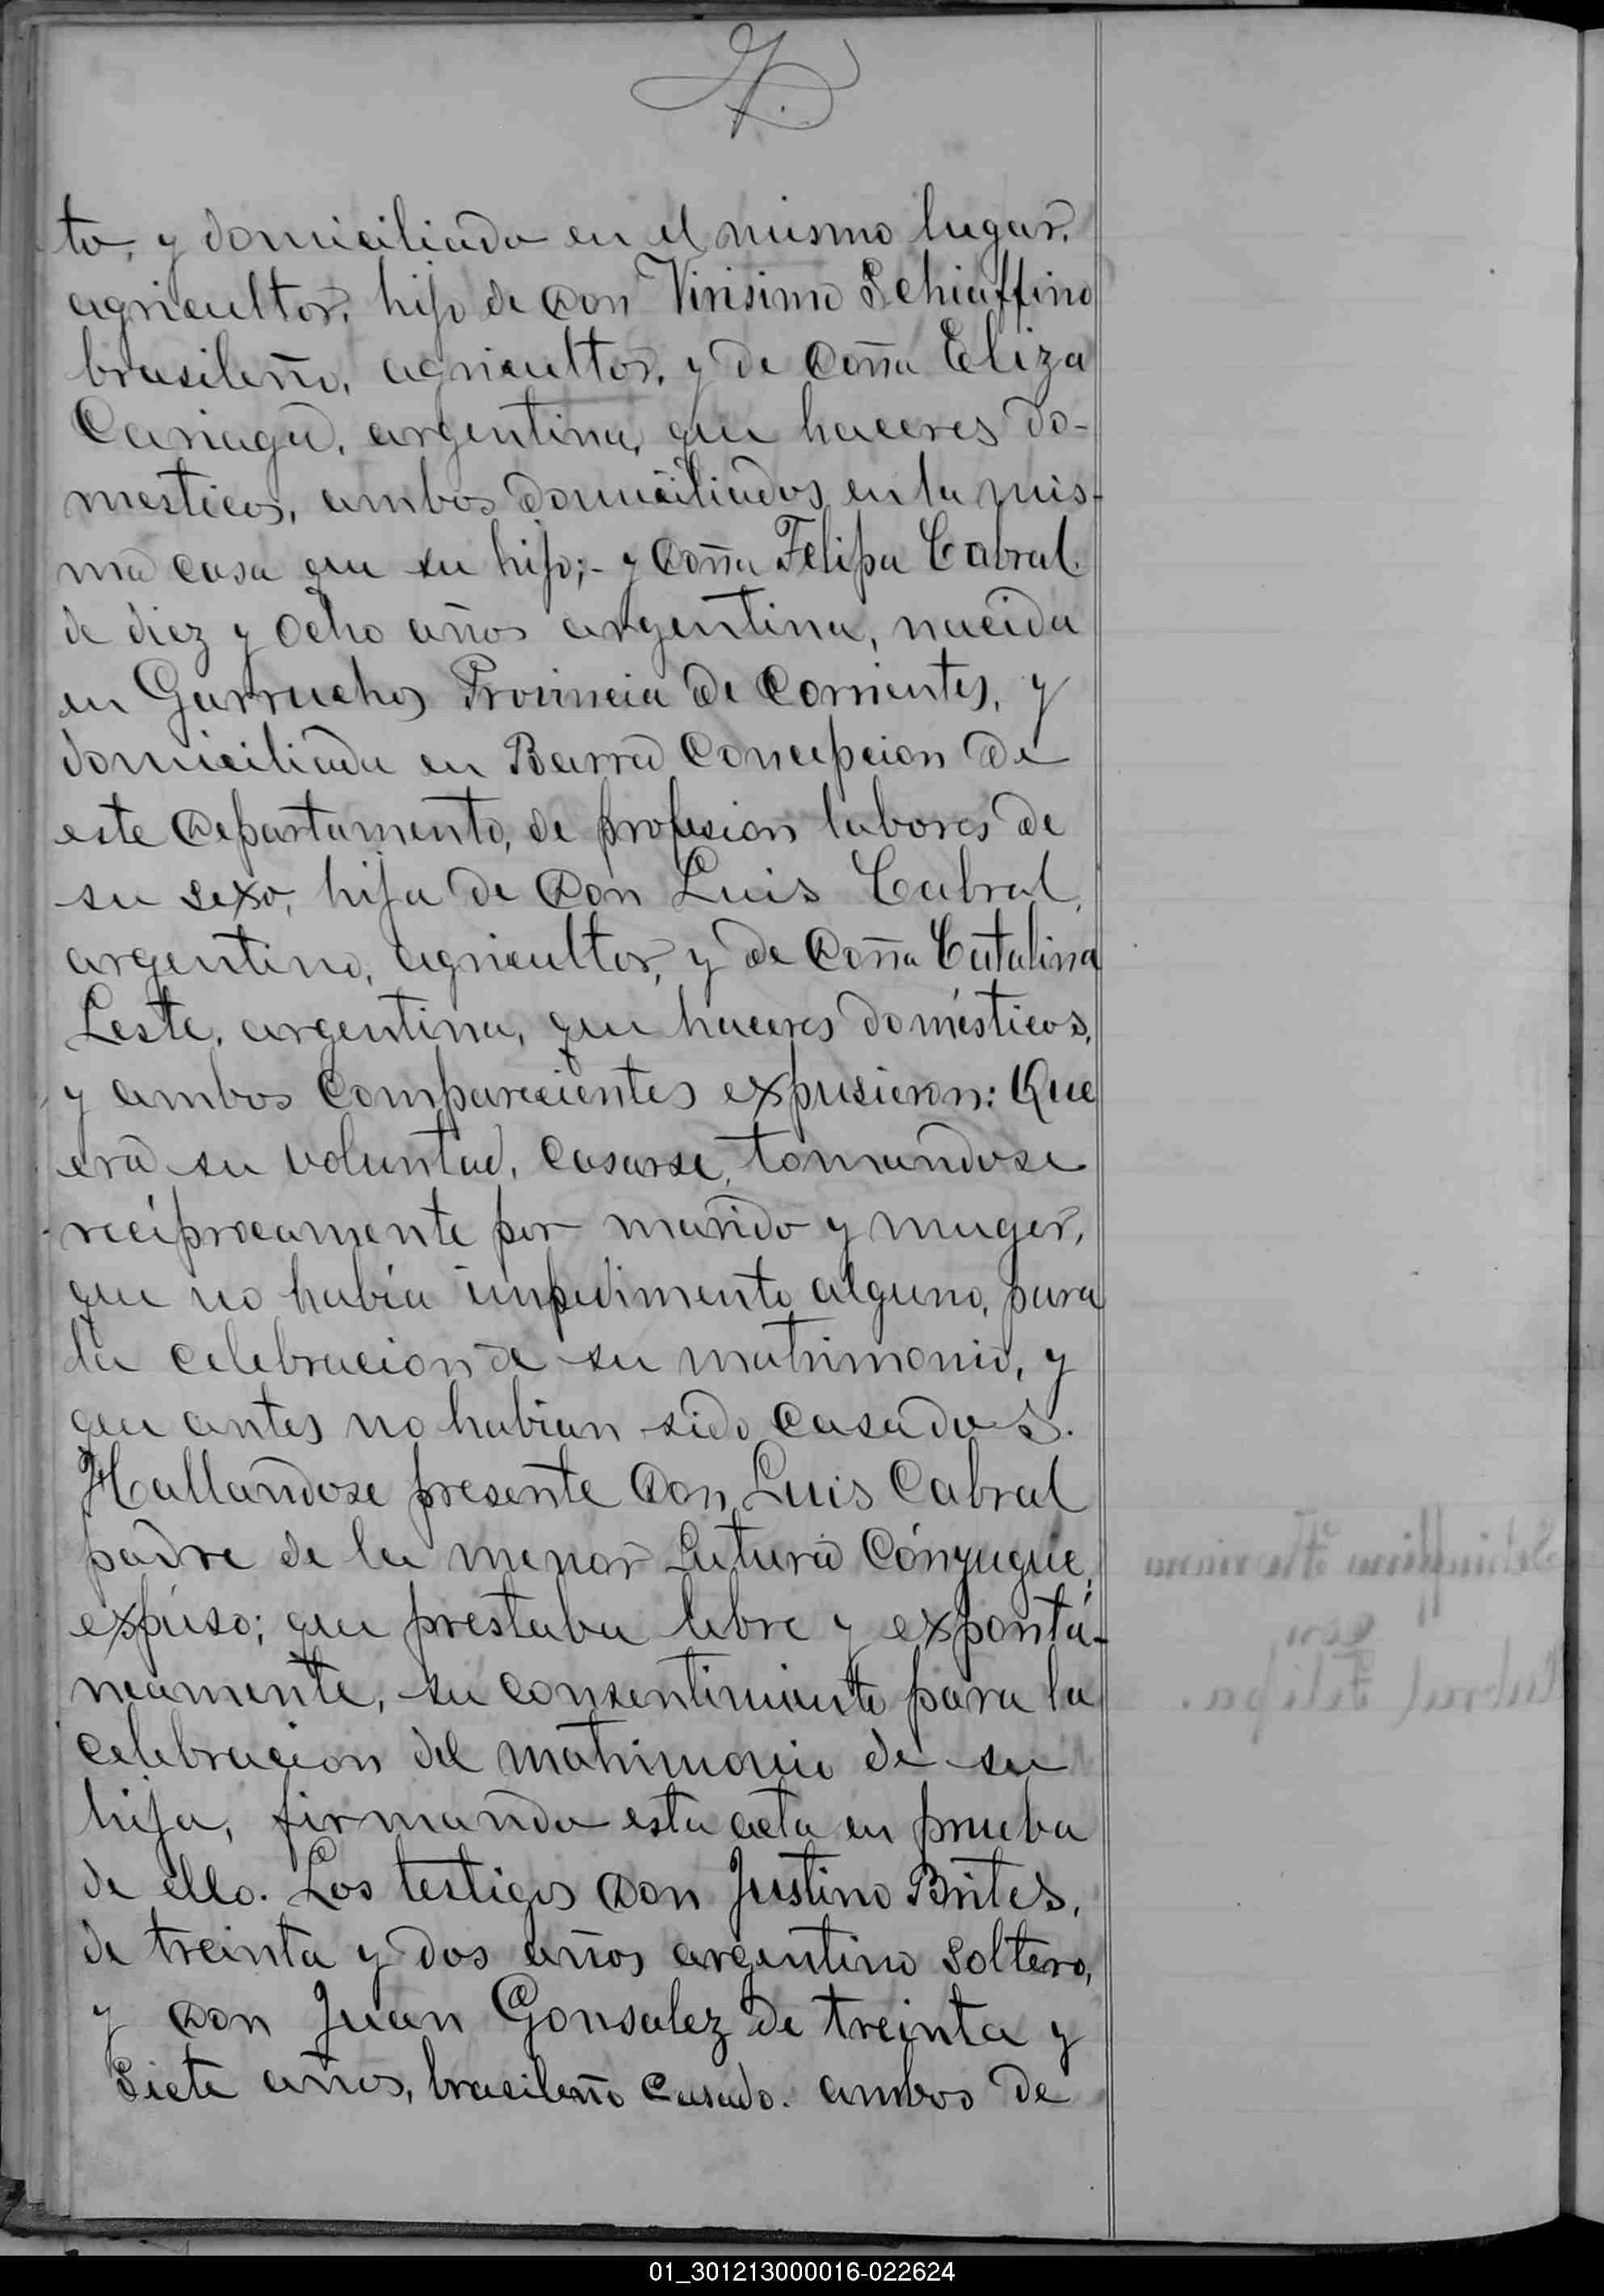 to, y domiciliado en el mismo lugar,
agricultor, hijo de Don Virisimo Schiaffino
brasileño, agricultor, y de Doña Eliza
Cariaga, argentina, que haceres do-
mesticos, ambos domiciliados en la mis-
ma casa que su hijo;- y Doña Felipa Cabral
de diez y ocho años argentina, nacida
en Garruchos Provincia de Corrientes, y
domiciliada en Barra Concepcion de
este Departamento, de profesion labores de
su sexo, hija de Don Luis Cabral,
argentino, agricultor, y de Doña Catalina
Leste, argentina, que haceres domésticos,
y ambos comparecientes expusieron: Que
era su voluntad, casarse, tomandose
recíprocamente por marido y muger,
que no había impedimento alguno, para
la celebracion de su matrimonio, y
que antes no habian sido casados.
Hallandose presente Don Luis Cabral
padre de la menor futura Cónyugue,
expuso; que prestaba libre y expontá-
neamente, su consentimiento para la
celebracion del matrimonio de su
hija, firmando esta acta en prueba
de ello. Los testigos Don Justino Brites,
de treinta y dos años argentino soltero,
y Don Juan Gonsalez de treinta y
siete años, bracileño casado. ambos de
01_301213000016-022624